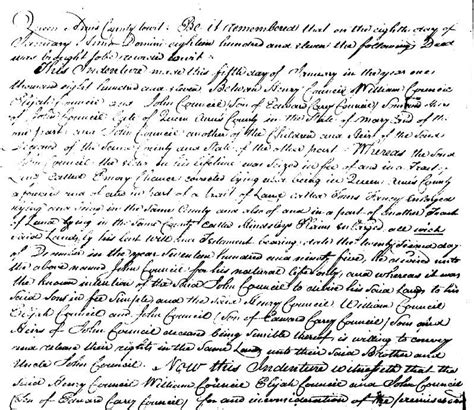 Queen Anns County Court: Be it remembered that on the eighth day of
January Anno Domini eighteen hundred and eleven the following Deed
was brought to be recorded to wit.
This Indenture made this fifth day of January in the year one
thousand eight hundred and eleven Between Henry Council William Council
Elijah Council and John Council (Son of Edward Cary Council) Sons and Heirs
of John Council late of Queen Anns County in the State of Maryland of the
one part and John Council another of the Children and Heir of the Said
Deceased of the Same County and State of the other part. Whereas the Said
John Council the elder in his lifetime was Seized in fee of and in a Tract
Land called Emory Chance corrected lying and being in Queen Anns County
aforesaid and of and in part of a tract of Land called Toms Fancy Enlarged
lying and being in the Same County and also of and in a part of another Tract
of Land lying in the Same County called Hindsleys Plains enlarged all wich
Said Lands by his last Will and Testament bearing date the twenty day
of in the year Seventeen hundred and ninety five, He devised unto
the above named John Council for his natural life only, and whereas it was
the known intention of the Said John Council to devise his Said Lands to his
Said Sons in fee Simple and the Said Henry Council William Council
Elijah Council and John Council (Son of Edward Cary Council) Sons and
Heirs of John Council deceased being Sensible thereof is willing to convey
and release their rights in the Same Lands unto their Said Brother and
Uncle John Council. Now this Indenture witnesseth that the
Said Henry Council William Council Elijah Council and John Council
(Son of Edward Cary Council) for and in consideration of the premises and